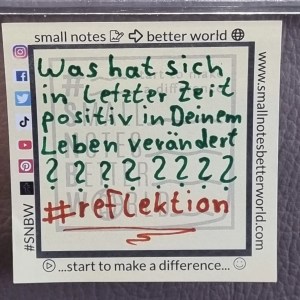 small notes ⇨ better world
Was hat sich
in letzter Zeit
positiv in Deinem
Leben verändert
? ? ? ? ? ? ? ?
#reflektion
...start to make a difference...
#SNBW
www.smallnotesbetterworld.com